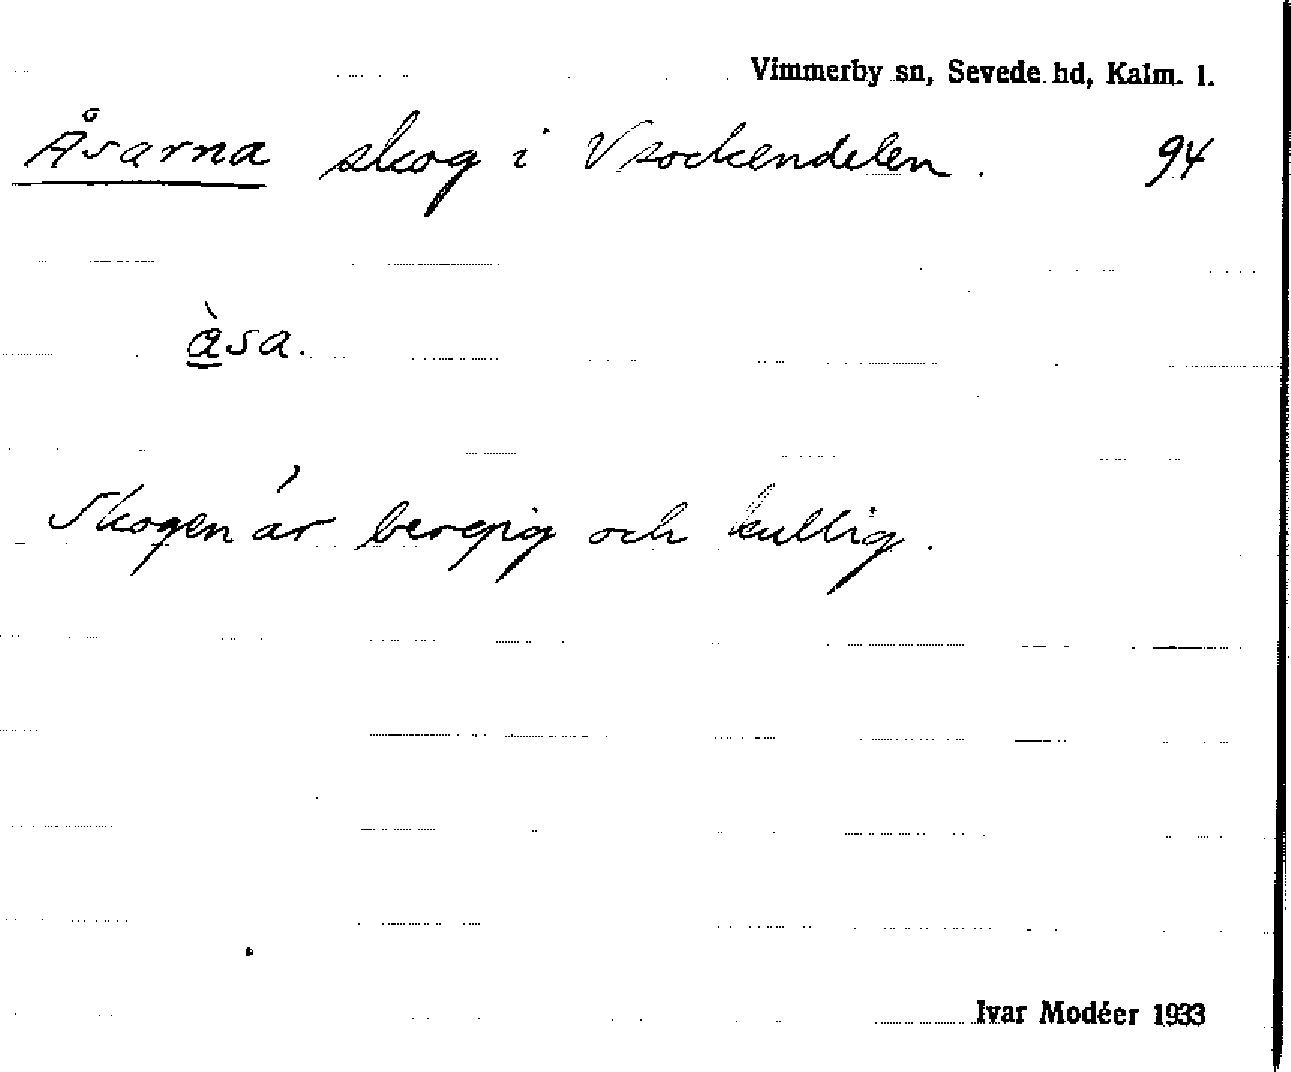 Vimmerby sn, Sevede hd, Kalm. l.
Åsarna skog i V sockendelen. 94
à̲sa.
Skogen är bergig och kullig.
Ivar Modéer 1933